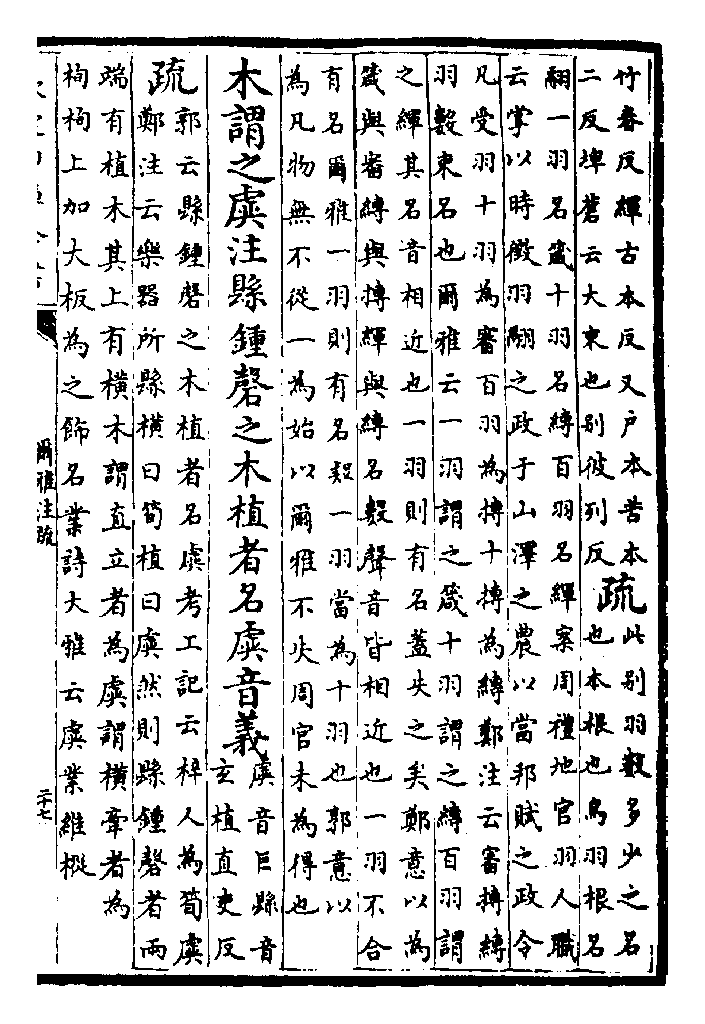 竹春反緷古本反又戶本苦本
二反埤蒼云大束也别彼列反
疏
此别羽數多少之名
也本根也鳥羽根名
翮一羽名箴十羽名縳百羽名緷案周禮地官羽人職
云掌以時徵羽翮之政于山澤之農以當邦賦之政令
凡受羽十羽為審百羽為摶十摶為縳鄭注云審摶縳
羽數束名也爾雅云一羽謂之箴十羽謂之縳百羽謂
之緷其名音相近也一羽則有名蓋失之矣鄭意以為
箴與審縳與摶緷與縳名數聲音皆相近也一羽不合
有名爾雅一羽則有名疑一羽當為十羽也郭意以
為凡物無不從一為始以爾雅不失周官未為得也
木謂之虡注縣鍾磬之木植者名虡音義
虡音巨縣音
玄植直吏反
疏
郭云縣鍾磬之木植者名虡考工記云梓人為筍虡
鄭注云樂器所縣橫曰筍植曰虡然則縣鍾磬者兩
端有植木其上有橫木謂直立者為虡謂橫牽者為
栒栒上加大板為之飾名業詩大雅云虡業維樅
爾雅注疏
二十七